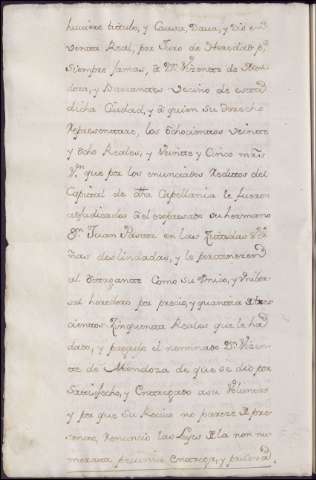 huviere titulo, y Causa, Dava, y Dio en
venta Real, por Juro de Heredad pa.
siempre jamas, a Dn. Vizente de Men
doza, y Barrantes Vecino de esta
dicha Ciudad, y a quien su derecho
representare, los ochocientos veinte
y ocho Reales, y veinte y Cinco mrs.
Vn. que por los enunciados Reditos del
Capital de dha Capellania le fueron
adjudicados a el expresado su hermano
Dn. Juan en las Citadas
deslindadas, y le pertenecen
al otorgante Como su Unico, y Univer
sal heredero por precio, y quantia de tres
cientos Cinquenta Reales que le ha
dado, y pagado el nominado Dn. Vizen
te de Mendoza de que se dio por
Satisfecho, y Entregado a su Voluntad
y por que su Recivo no parece de pre
sente, renuncio las Leyes de la non nu
merata pecunia Entrega, y